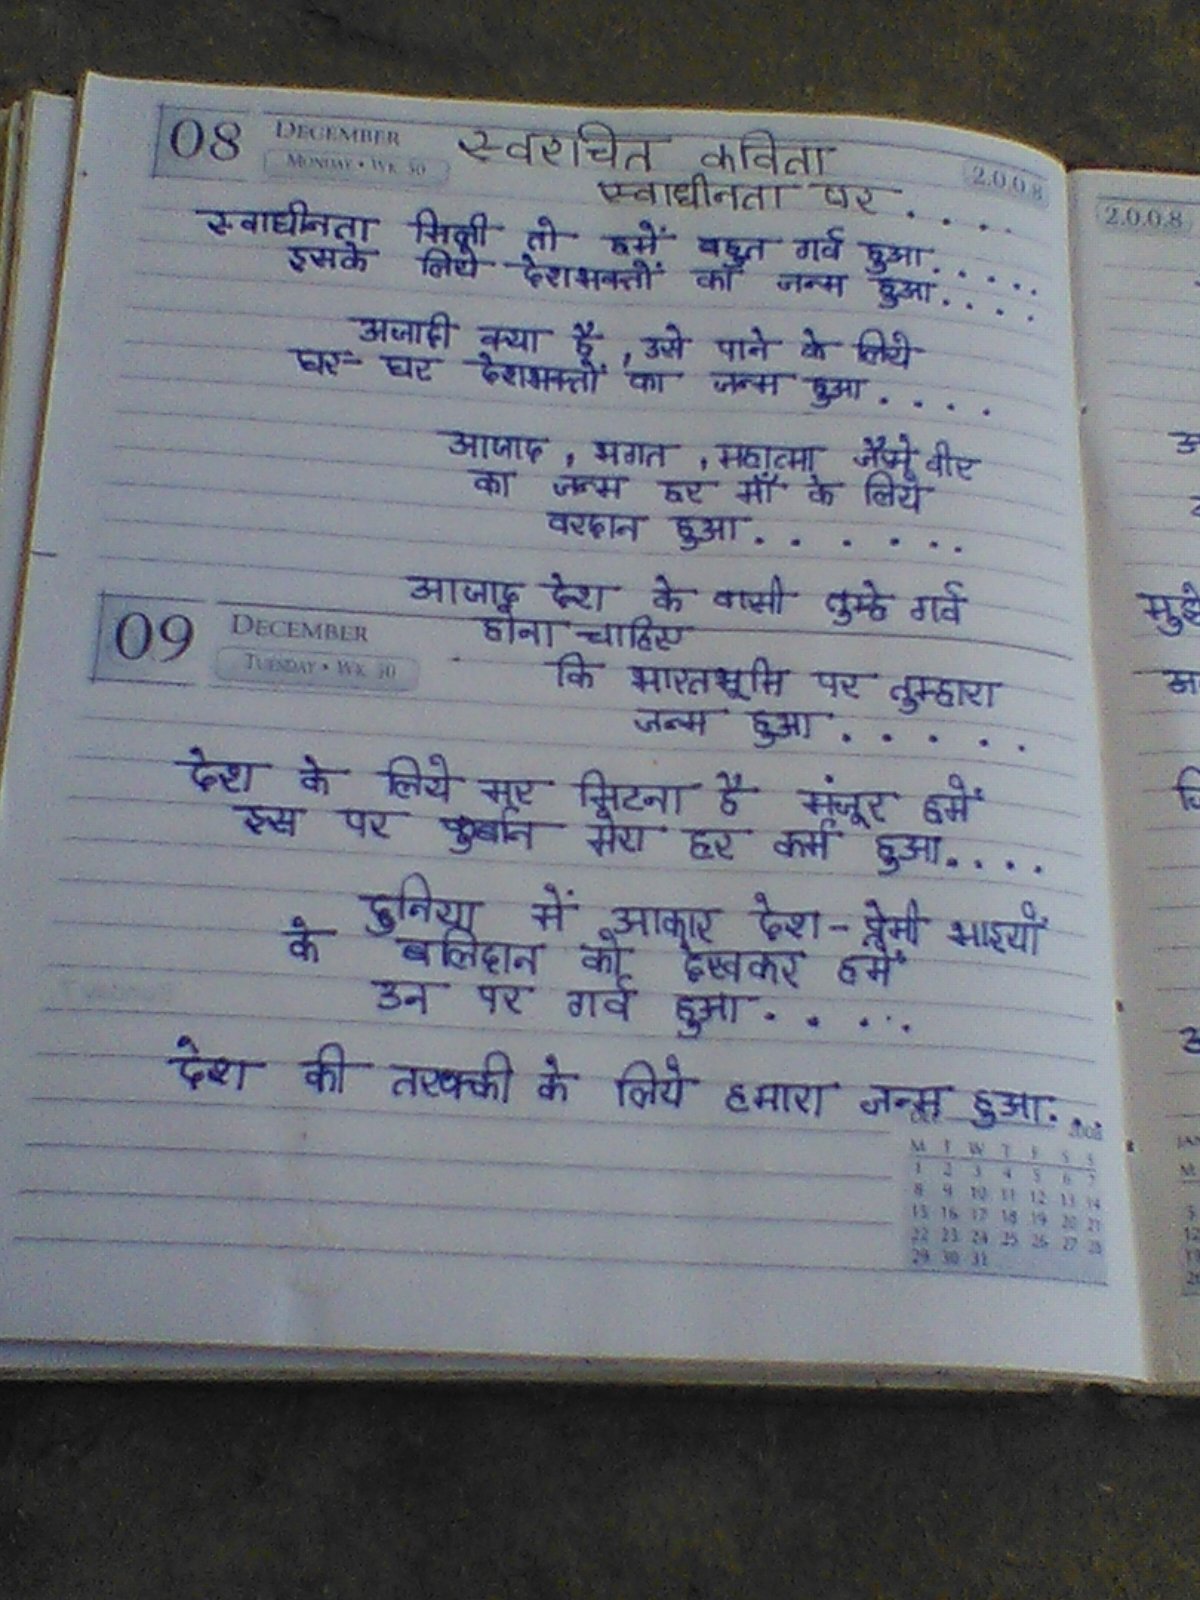 08 DECEMBER स्वरचित कविता 2008
MONDAY • WK 50
स्वाधीनता पर . . . .
स्वाधीनता मिली तो हमें बहुत गर्व हुआ.....
इसके लिये देशभक्तों का जन्म हुआ....
अजादी क्या है, उसे पाने के लिये
घर-घर देशभक्तों का जन्म हुआ....
आजाद, भगत, महात्मा जैसे वीर
का जन्म हर माँ के लिये
वरदान हुआ.......
आजाद देश के वासी तुम्हे गर्व
09 DECEMBER होना चाहिए
TUESDAY • WK 50
कि भारतभूमि पर तुम्हारा
जन्म हुआ.....
देश के लिये मर मिटना है मंजूर हमें
इस पर कुर्बान मेरा हर कर्म हुआ....
दुनिया में आकार देश-प्रेमी भाइयों
के बलिदान को देखकर हमें
उन पर गर्व हुआ.....
देश की तरक्की के लिये हमारा जन्म हुआ...
2008
M T W T F S S
1 2 3 4 5 6 7
8 9 10 11 12 13 14
15 16 17 18 19 20 21
22 23 24 25 26 27 28
29 30 31
2008